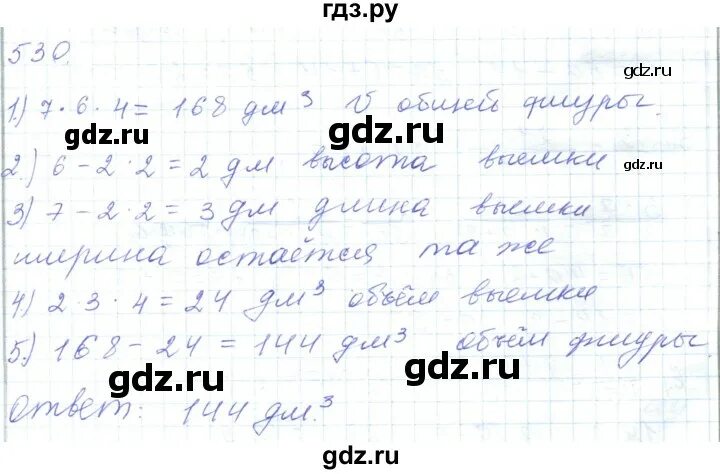 гдз.ру
530.
1.) 7·6·4= 168 дм³ V общей фигуры.
gdz.ru
gdz.ru
gdz.ru
2.) 6-2·2=2 дм высота выемки
3) 7-2·2=3 дм длина выемки
gdz.ru
gdz.ru
ширина остаётся та же
4) 2·3·4=24 дм³ объём выемки
5.) 168-24=144 дм³ объём фигуры.
gdz.ru
gdz.ru
gdz.ru
ответ: 144 дм.³
gdz.ru